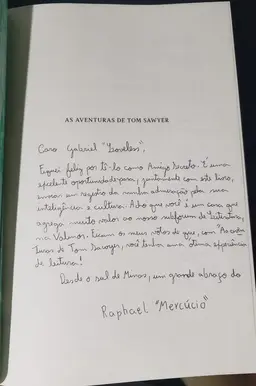 AS AVENTURAS DE TOM SAWYER
Caro Gabriel "Loveless",
Fiquei feliz por tê-lo como Amigo Secreto. É uma
excelente oportunidade para, juntamente com este livro,
enviar um registro da minha admiração pela sua
inteligência e cultura. Acho que você é um cara que
agrega muito valor ao nosso subfórum de Literatura,
na Valinor. Ficam os meus votos de que, com "As aven
turas de Tom Sawyer, você tenha uma ótima experiência
de leitura!
Desde o sul de Minas, um grande abraço do
Raphael "Mercúcio"